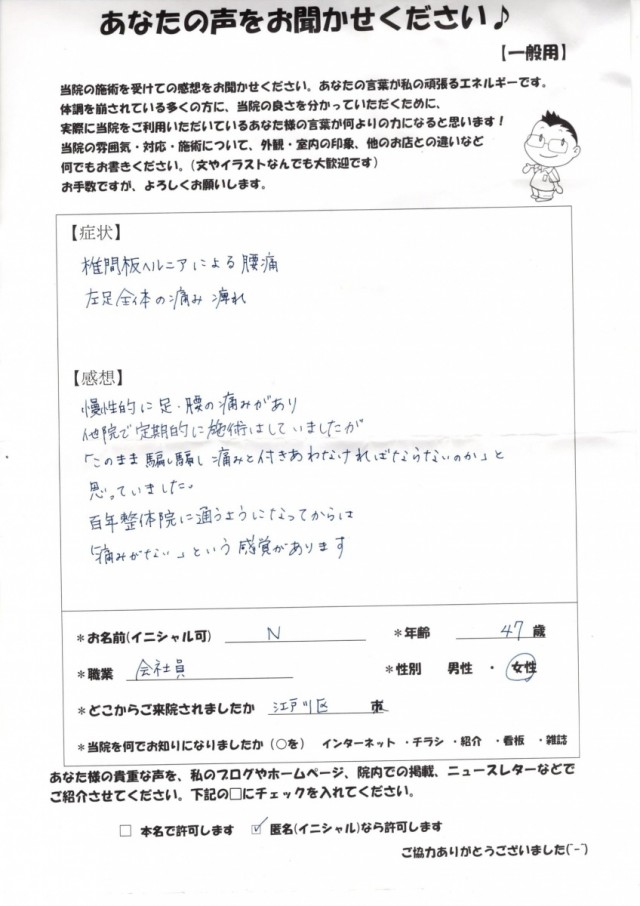 あなたの声をお聞かせください♪
【一般用】
当院の施術を受けての感想をお聞かせください。あなたの言葉が私の頑張るエネルギーです。
体調を崩されている多くの方に、当院の良さを分かっていただくために、
実際に当院をご利用いただいているあなた様の言葉が何よりの力になると思います！
当院の雰囲気・対応・施術について、外観・室内の印象、他のお店との違いなど
何でもお書きください。(文やイラストなんでも大歓迎です)
お手数ですが、よろしくお願いします。
【症状】
椎間板ヘルニアによる腰痛
左足全体の痛み 痺れ
【感想】
慢性的に足・腰の痛みがあり
他院で定期的に施術はしていましたが
「このまま騙し騙し痛みと付きあわなければならないのか」と
思っていました。
百年整体院に通うようになってからは
「痛みがない」という感覚があります
＊お名前(イニシャル可) N ＊年齢 47 歳
＊職業 会社員 ＊性別 男性 ・ 女性
＊どこからご来院されましたか 江戸川区 市
＊当院を何でお知りになりましたか（○を） インターネット ・チラシ ・紹介 ・看板 ・雑誌
あなた様の貴重な声を、私のブログやホームページ、院内での掲載、ニュースレターなどで
ご紹介させてください。下記の□にチェックを入れてください。
□ 本名で許可します ☑ 匿名(イニシャル)なら許可します
ご協力ありがとうございました(^-^)